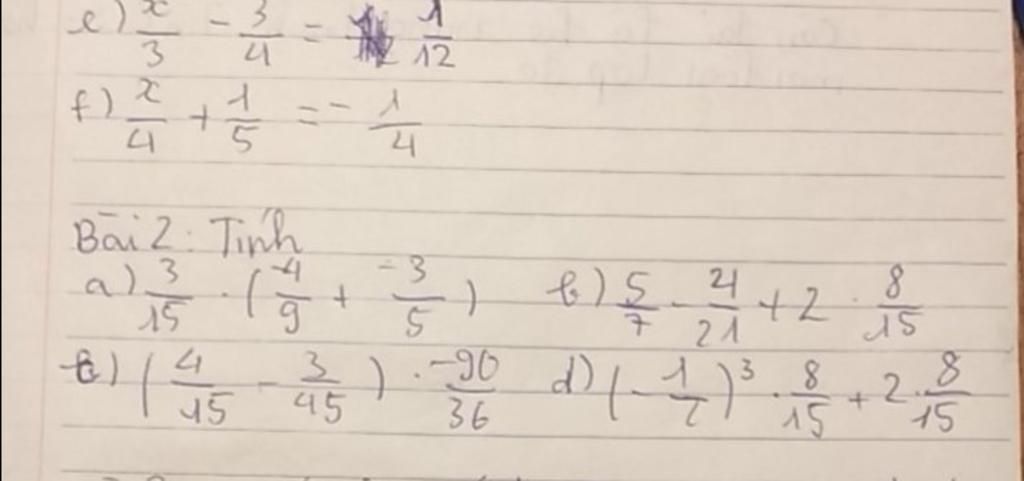 e) x/3 - 3/4 = 1/12
f) x/4 + 1/5 = - 1/4
Bài 2: Tính
a) 3/15 . (-4/9 + -3/5) b) 5/7 - 4/21 + 2 . 8/15
c) (4/15 - 3/45) . -90/36 d) (- 1/2)^3 . 8/15 + 2 . 8/15